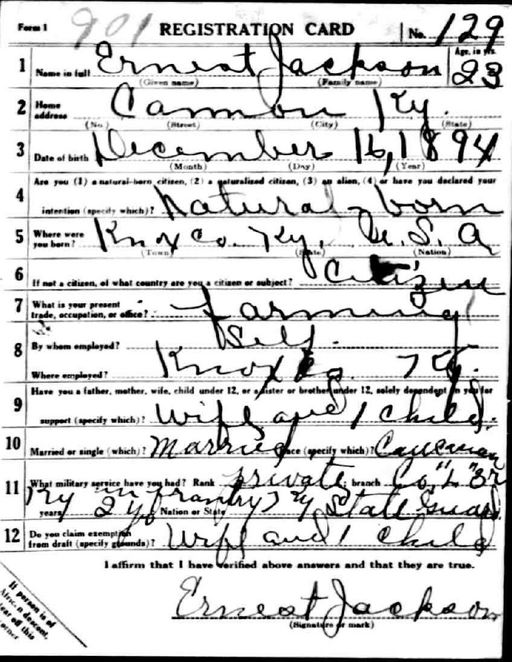 Form 1 901 REGISTRATION CARD No. 129
1 Name in full Ernest Jackson Age, in yrs. 23
(Given name) (Family name)
2 Home address Cannon Ky.
(No.) (Street) (City) (State)
3 Date of birth December 16, 1894
(Month) (Day) (Year)
4 Are you (1) a natural-born citizen, (2) a naturalized citizen, (3) an alien, (4) or have you declared your
intention (specify which)? Natural-born
5 Where were you born? Knox Co. Ky. U.S.A
(Town) (State) (Nation)
6 If not a citizen, of what country are you a citizen or subject? Citizen
7 What is your present trade, occupation, or office? farming
8 By whom employed? Self.
Where employed? Knox Co. Ky.
9 Have you a father, mother, wife, child under 12, or a sister or brother under 12, solely dependent on you for
support (specify which)? Wife and 1 child.
10 Married or single (which)? Married Race (specify which)? Caucasian
11 What military service have you had? Rank private branch Co. "L" 3r
Ky infantry
years 2 y Nation or State Ky State Guard
12 Do you claim exemption from draft (specify grounds)? Wife and 1 child
I affirm that I have verified above answers and that they are true.
Ernest Jackson
(Signature or mark)
If person is of
African descent,
tear off this
corner